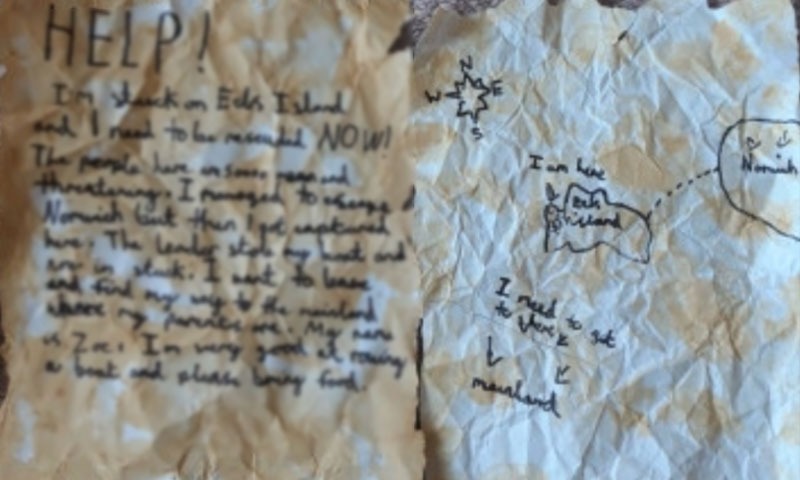 HELP!
I'm stuck on Eels Island
and I need to be rescued NOW!
The people here are so mean and
threatening. I managed to escape
Norwich but then I got captured
here. The leader stole my boat and
now im stuck. I want to leave
and find my way to the mainland
where my parents are. My name
is Zoe. I'm very good at rowing
a boat and please bring food.
N
W E
S
I am here
island
Norwich
I need to get
to there
mainland